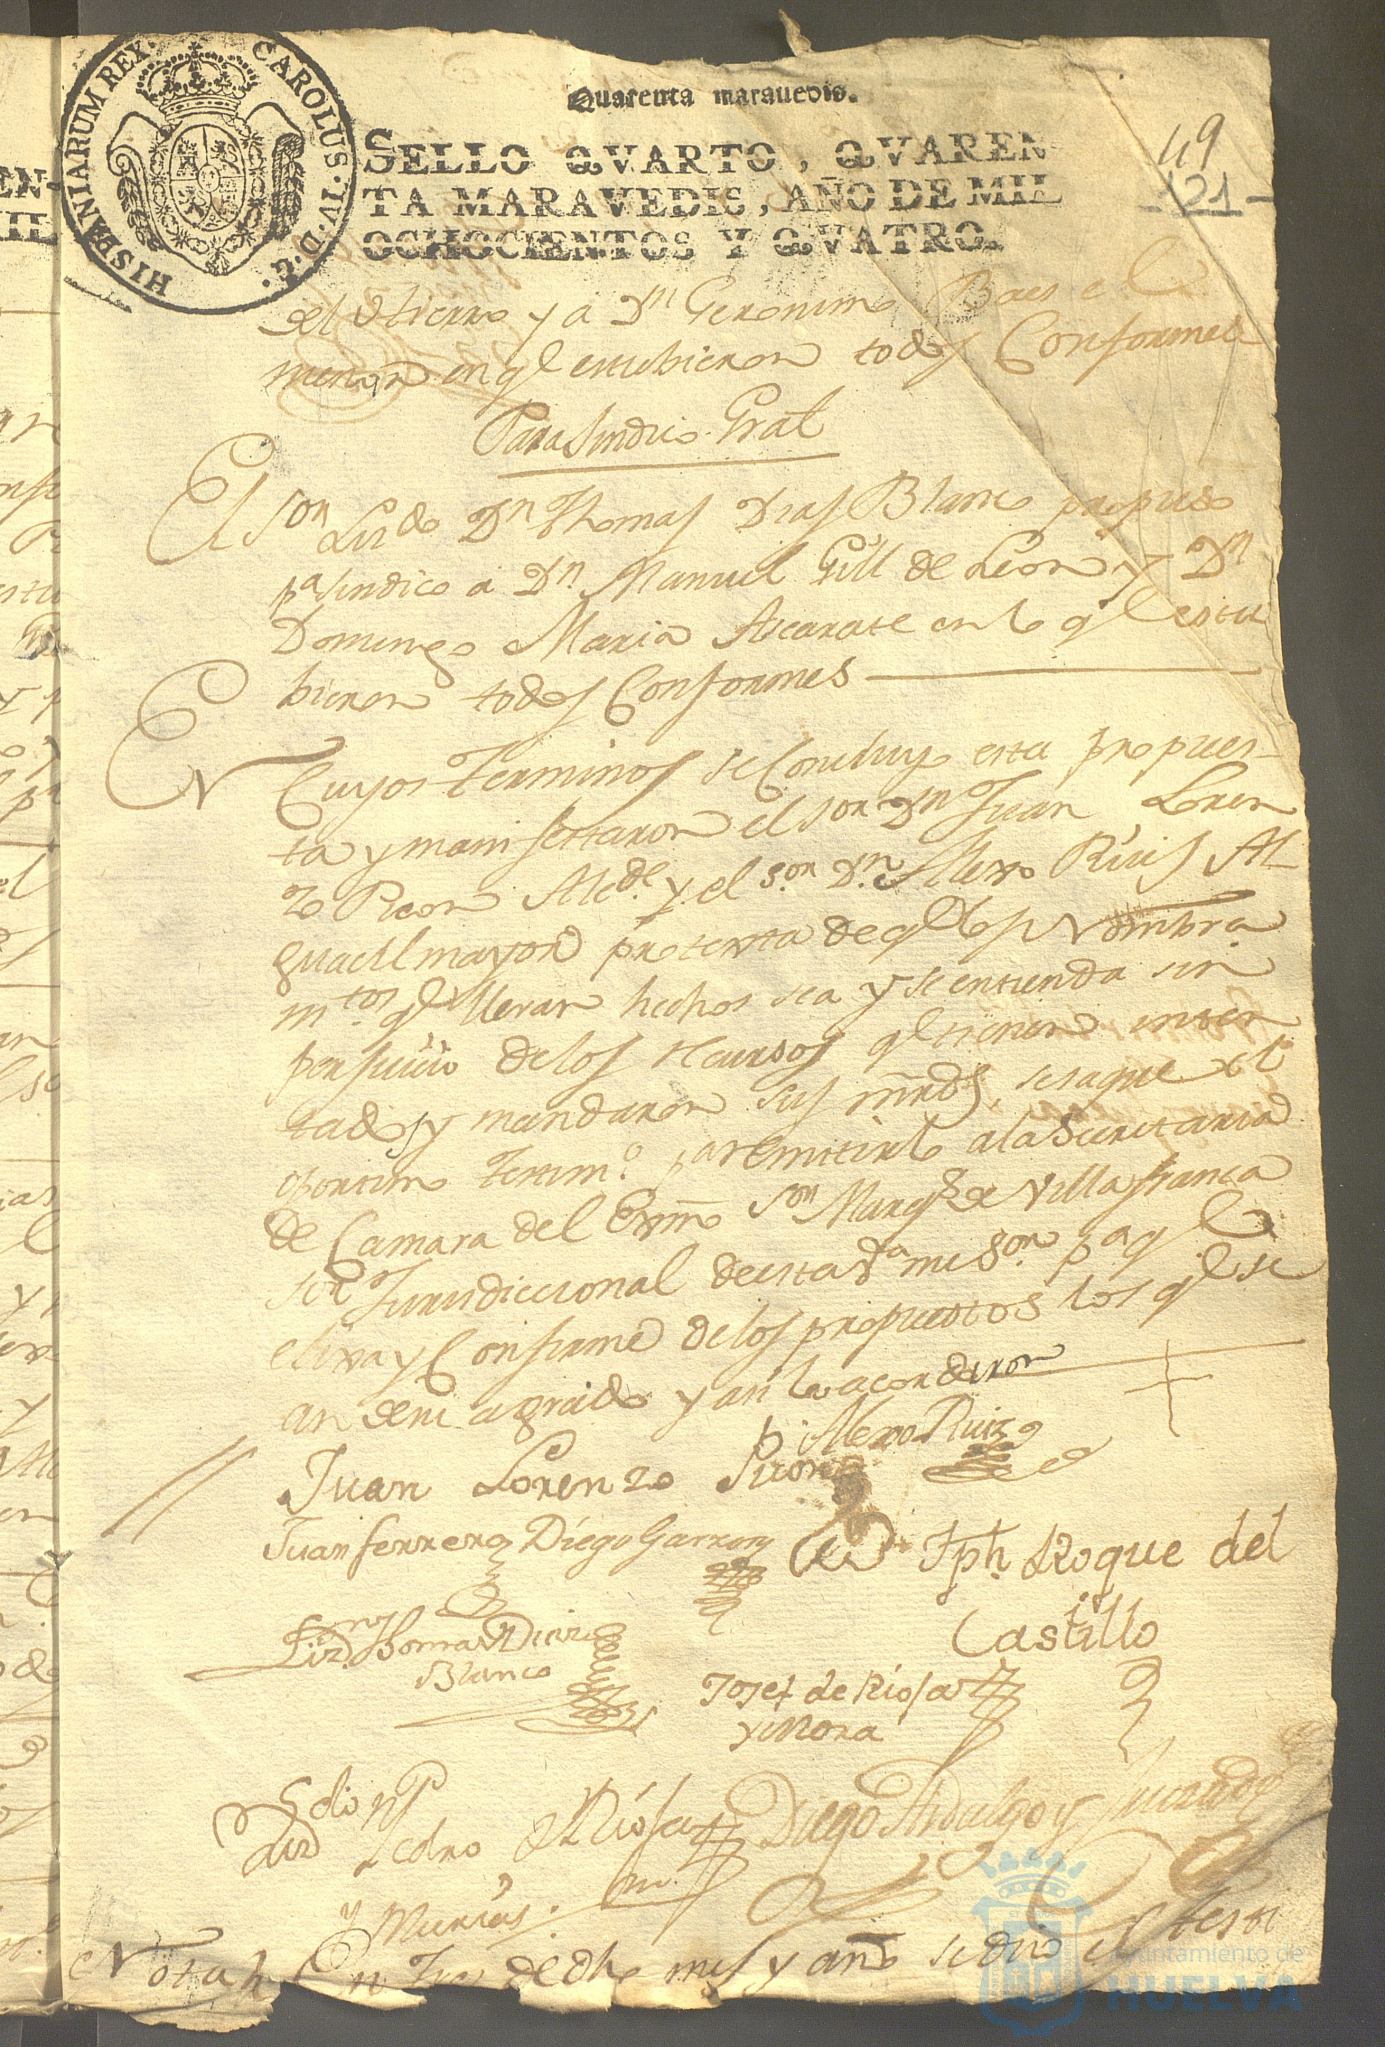 HISPANIARUM REX. CAROLUS. IV. D. G.
Quarenta maravedis.
SELLO QVARTO, QVAREN
TA MARAVEDIS, AÑO DE MIL
OCHOCIENTOS Y QVATRO.
49
121
y a Dn Geronimo Baes el
menor en ql estubieron todos Conformes
Para Sindico Gral
El Sor Lizdo Dn Thomas Dias Blanco propuso
pa Sindico a Dn Manuel Gill de Leon y Dn
Domingo Maria Ascarate en lo ql estu
bieron todos Conformes
En Cuyos Terminos se Concluyo esta propues-
ta y manifestaron el Sor Dn Juan Loren
zo Picon Alcde y el Sor Dn Alexo Ruis Al-
guacil mayor protexta de ql los Nombra
mtos ql llevan hechos sea y se entienda sin
perjuicio de los recursos ql tienen inten
tados y mandaron sus mrds se saque el
oportuno Testimo pa remitirlo a la Secretaria
de Camara del Exmo Sor Marqs de Villafranca
Jurisdiccional de esta Va mi Sor pa ql
elixa y Confirme de los propuestos los ql se
an de su agrado y asi lo acordaron
Juan Lorenzo Picon
Alexo Ruiz
Juan Ferrero Diego Garzon
Jph. Roque del
Castillo
Lizd. Thomas Diaz
Blanco
Josef de Riofa
y Mora
Lizd Pedro de Riofa
y Macias.
Diego Hidalgo y
Nota En Tres de dho mes y año se dio el testi
Ayuntamiento de
HUELVA